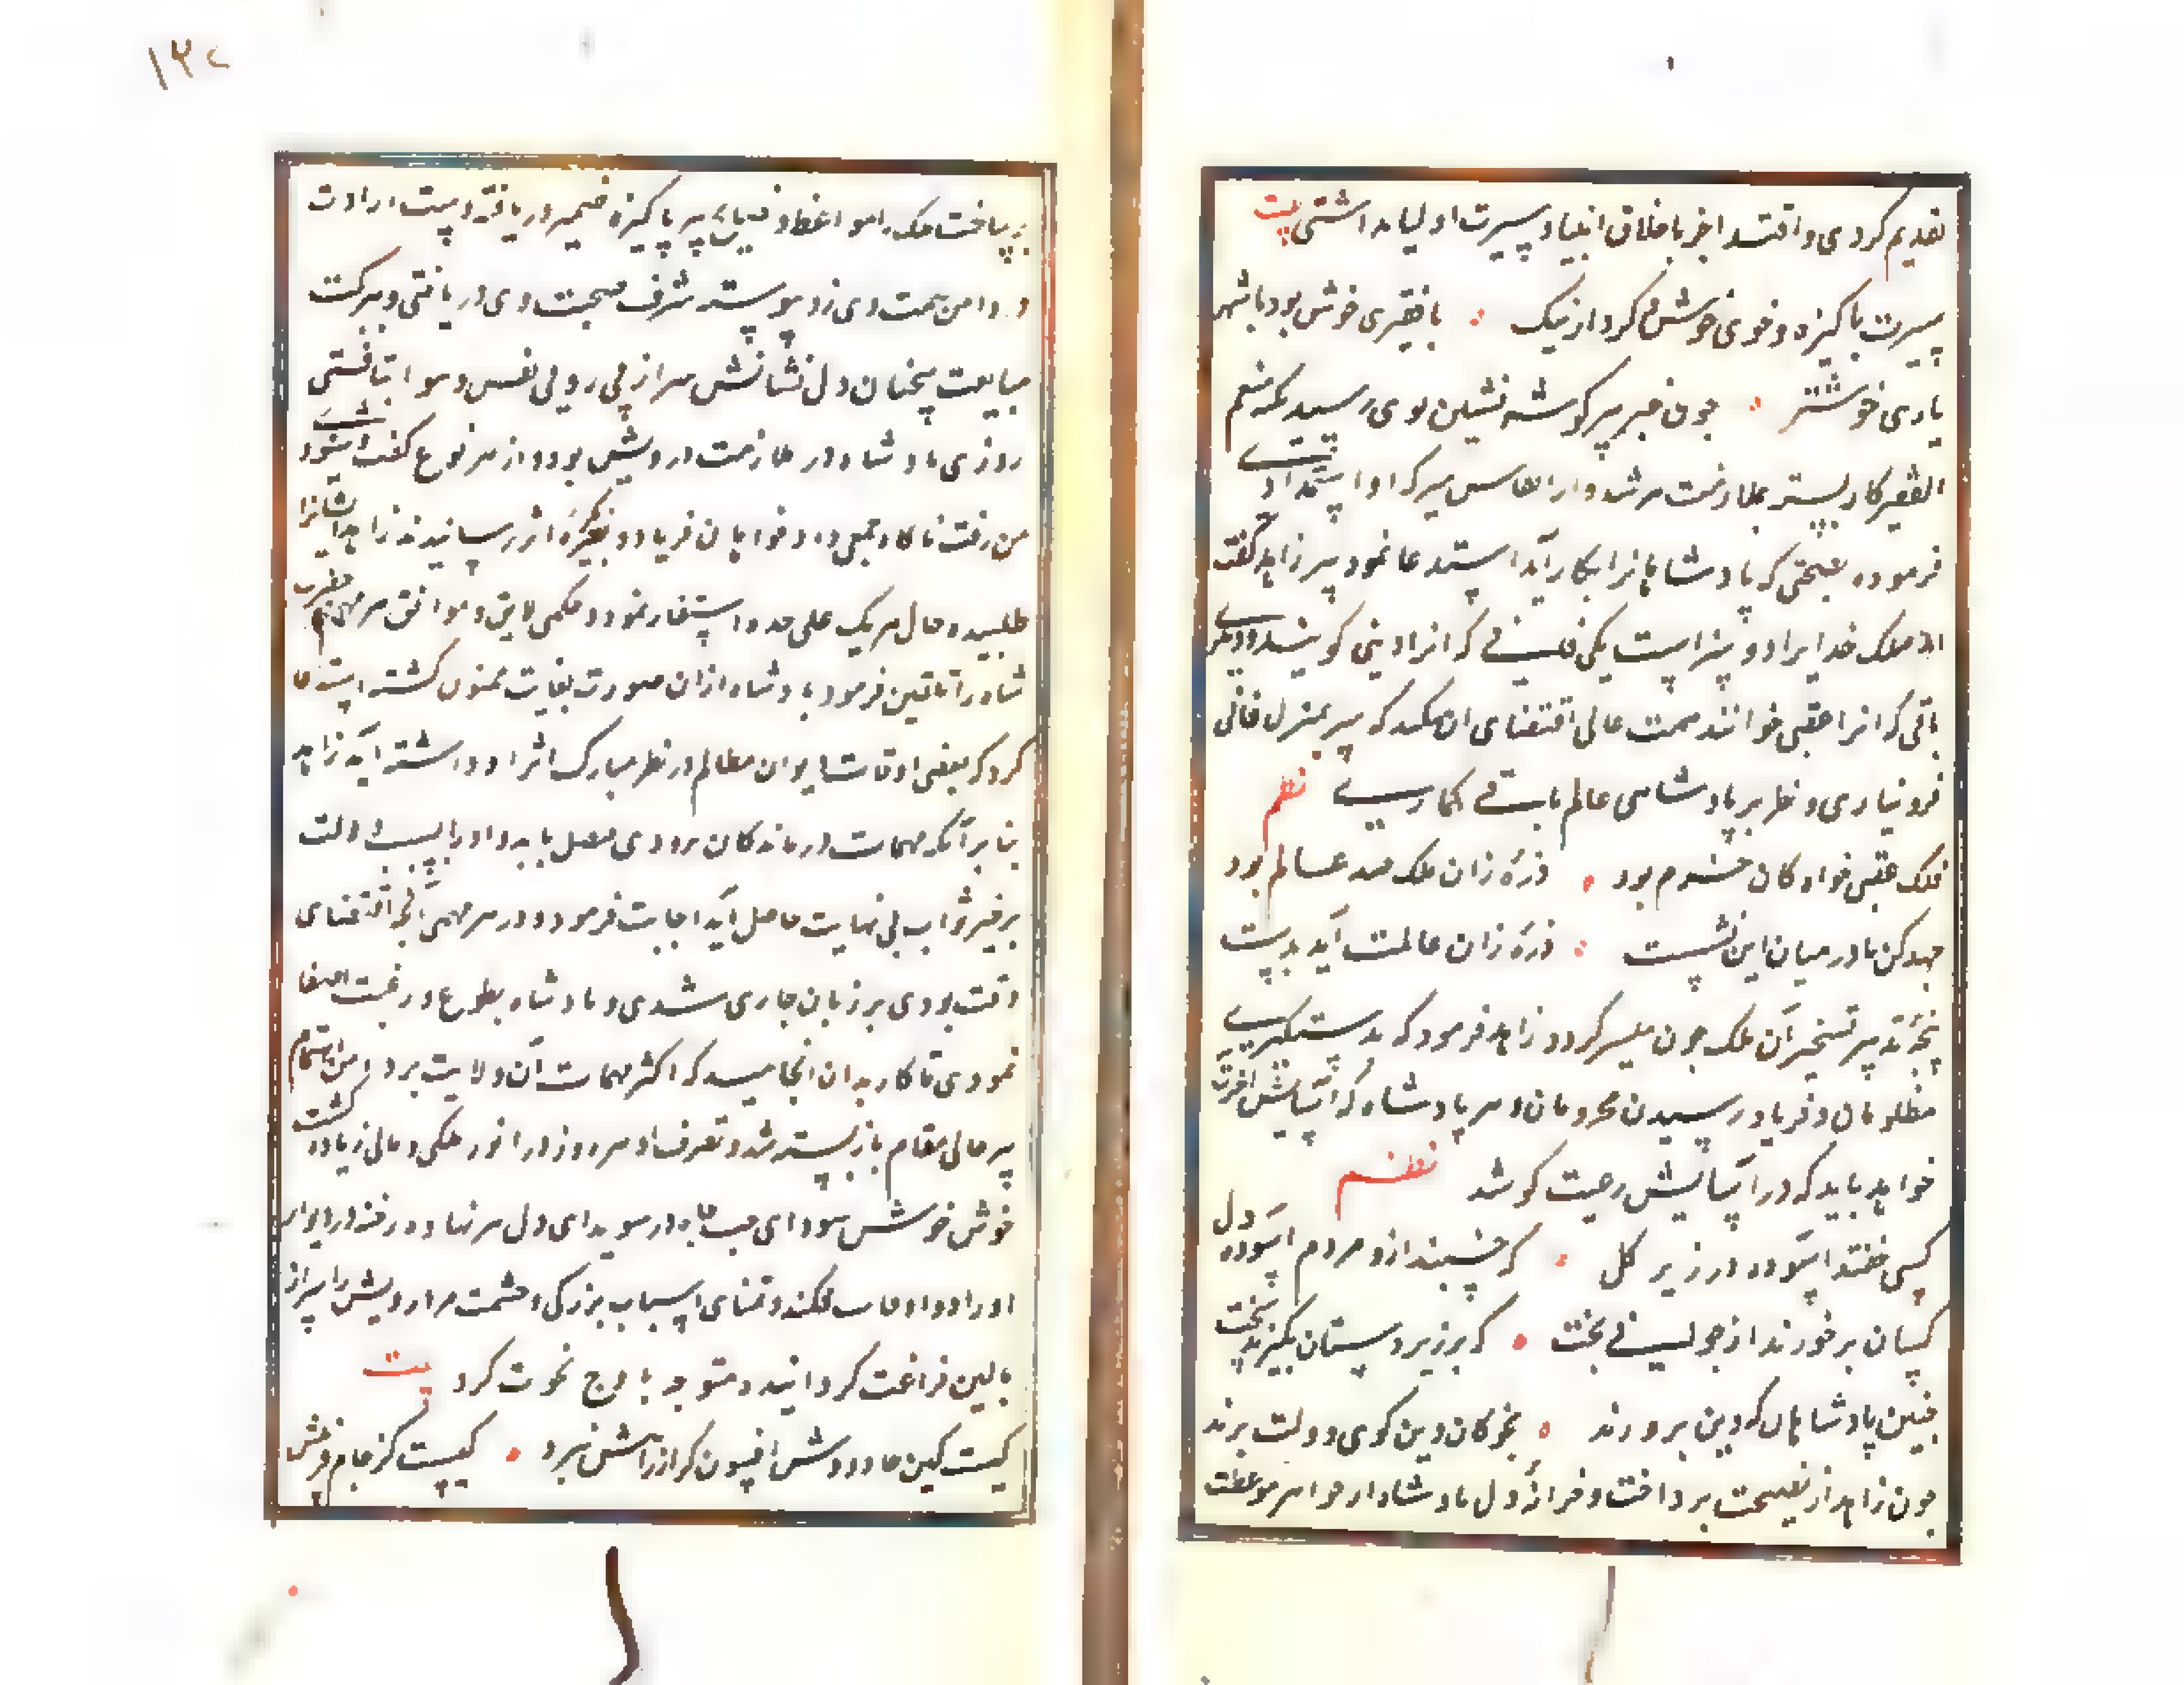 تقدیم کردی و اقتدا جز باخلاق انبیا و سیرت اولیا نداشتی بیت
سیرت پاکیزه و خوی خوش و کردار نیک با فقیری خوش بود با شهر
یاری خوشتر چون خبر پیر گوشه نشین بوی رسید که نعم
الفقیر کار بسته بملازمت مرشد و از انفاس متبرکه او استمداد
فرموده نصیحتی که پادشاهانرا بکار آید استدعا نمود پیر زاهد گفت
ای ملک خدایرا دو سراست یکی فانی که انرا دنیی گویند و دیگری
باقی که انرا عقبی خوانند همت عالی اقتضای ان میکند که سر بمنزل فانی
فرو نیاری و نظر بر پادشاهی عالم باقی گماری نظم
ملک عقبی خواه کان خرم بود ذرهٔ زان ملک صد عالم بود
جهد کن تا در میان این نشست ذرهٔ زان عالمت آید بدست
تدبیر تسخیر آن ملک چون میسر گردد زاهد فرمود که بدستگیری
مظلومان و فریاد رسیدن محرومان و هر پادشاه که آسایش آخرت
خواهد باید که در آسایش رعیت کوشد نظم
کسی خفتد آسوده در زیر گل که خسبند ازو مردم آسوده دل
کسان بر خورند از جوانی و بخت که بر زیر دستان نگیرند سخت
چنین پادشاهان که دین پرورند بچوگان دین گوی دولت برند
چون زاهد از نصیحت پرداخت و خزانهٔ دل پادشاه از جواهر موعظت
پر ساخت ملک را مواعظ و نصایح پیر پاکیزه ضمیر دریافته دست ارادت
در دامن همت وی زد و پیوسته شرف صحبت وی دریافتی و ببرکت
متابعت سخنان دل نشانش سر از پی روی نفس و هوا بتافتی
روزی پادشاه در ملازمت درویش بود و از هر نوع گفت و شنود
می رفت ناگاه جمعی دادخواهان فریاد و نفیر بکرهٔ اثیر رسانیدند زاهد ایشانرا
طلبیده و حال هر یک علی حده استفسار نمود و حکمی لایق و موافق هر مهم بحضرت
شاه را تلقین فرمود پادشاه ازان صورت بغایت ممنون گشته استدعا
کرد که بعضی اوقات دیوان مظالم در نظر مبارک او داشته آید زاهد
بنا بر آنکه مهمات درماندگان بزودی فیصل یابد و او را بسبب دلالت
بر خیر ثواب بی نهایت حاصل آید اجابت فرمود و در هر مهمی آنچه اقتضای
وقت بودی بر زبان جاری شدی و پادشاه بطوع و رغبت اصغا
نمودی تا کار بدان انجامید که اکثر مهمات آن ولایت بر دامن اهتمام
پیر عالی مقام باز بسته شد و تصرف او هر روز در امور ملکی و مالی زیاده گشت
خوش خوش سودای حب جاه در سویدای دل سر نهاد و رخنه در دیوار
اوراد و اوقات افکند و تمنای اسباب بزرگی و حشمت مر درویش را سر از
بالین فراغت گردانید و متوجه باوج نخوت کرد بیت
کیست کین جادووش افسون گر از راهش نبرد کیست کز جام فریبش
۱۳۸